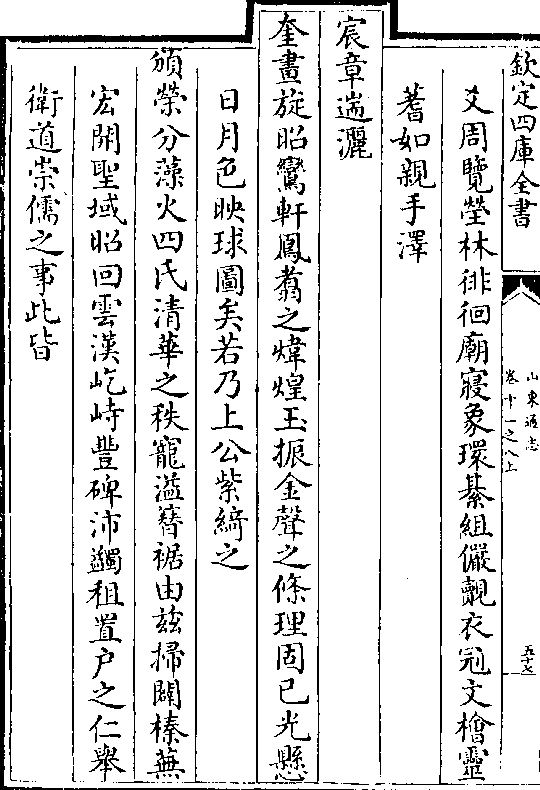 欽定四庫全書
山東通志
卷十一之八上
五十七
爻周覽塋林徘徊廟寢象環綦組儼覿衣冠文檜靈
蓍如親手澤
宸章遄灑
奎畫旋昭鸞軒鳳翥之煒煌玉振金聲之條理固已光懸
日月色映球圖矣若乃上公紫綺之
頒榮分藻火四氏清華之秩寵溢簪裾由兹掃闢榛蕪
宏開聖域昭回雲漢屹峙豐碑沛蠲租置户之仁舉
衛道崇儒之事此皆